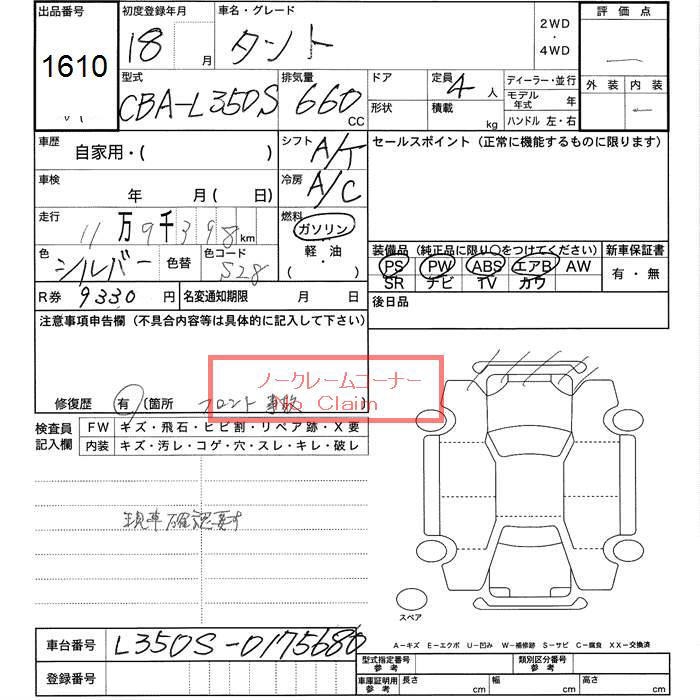 出品番号
1610
初度登録年月
18 月
車名・グレード
タント
2WD
・
4WD
評価点
外装 内装
型式
CBA-L350S
排気量
660 CC
ドア
形状
定員 4 人
積載 kg
ディーラー・並行
モデル年式 年
ハンドル 左・右
車歴
自家用・( )
シフト A/T
セールスポイント (正常に機能するものに限ります)
車検
年 月 ( 日)
冷房 A/C
走行
11万9千398 km
燃料
ガソリン
軽・油
( )
色
シルバー
色替
色コード
S28
装備品 (純正品に限り○をつけてください)
新車保証書
PS PW ABS エアB AW
SR ナビ TV カワ
有・無
R券 9330 円
名変通知期限 月 日
後日品
注意事項申告欄 (不具合内容等は具体的に記入して下さい)
ノークレームコーナー
No Claim
修復歴 有 (箇所 フロント事故 )
検査員記入欄
FW キズ・飛石・ヒビ割・リペア跡・X要
内装 キズ・汚レ・コゲ・穴・スレ・キレ・破レ
現車確認要す
スペア
A-キズ E-エクボ U-凹み W-補修跡 S-サビ C-腐食 XX-交換済
車台番号 L350S-0175680
登録番号
型式指定番号 参考
類別区分番号 参考
車庫証明用 参考
長さ cm 幅 cm 高さ cm